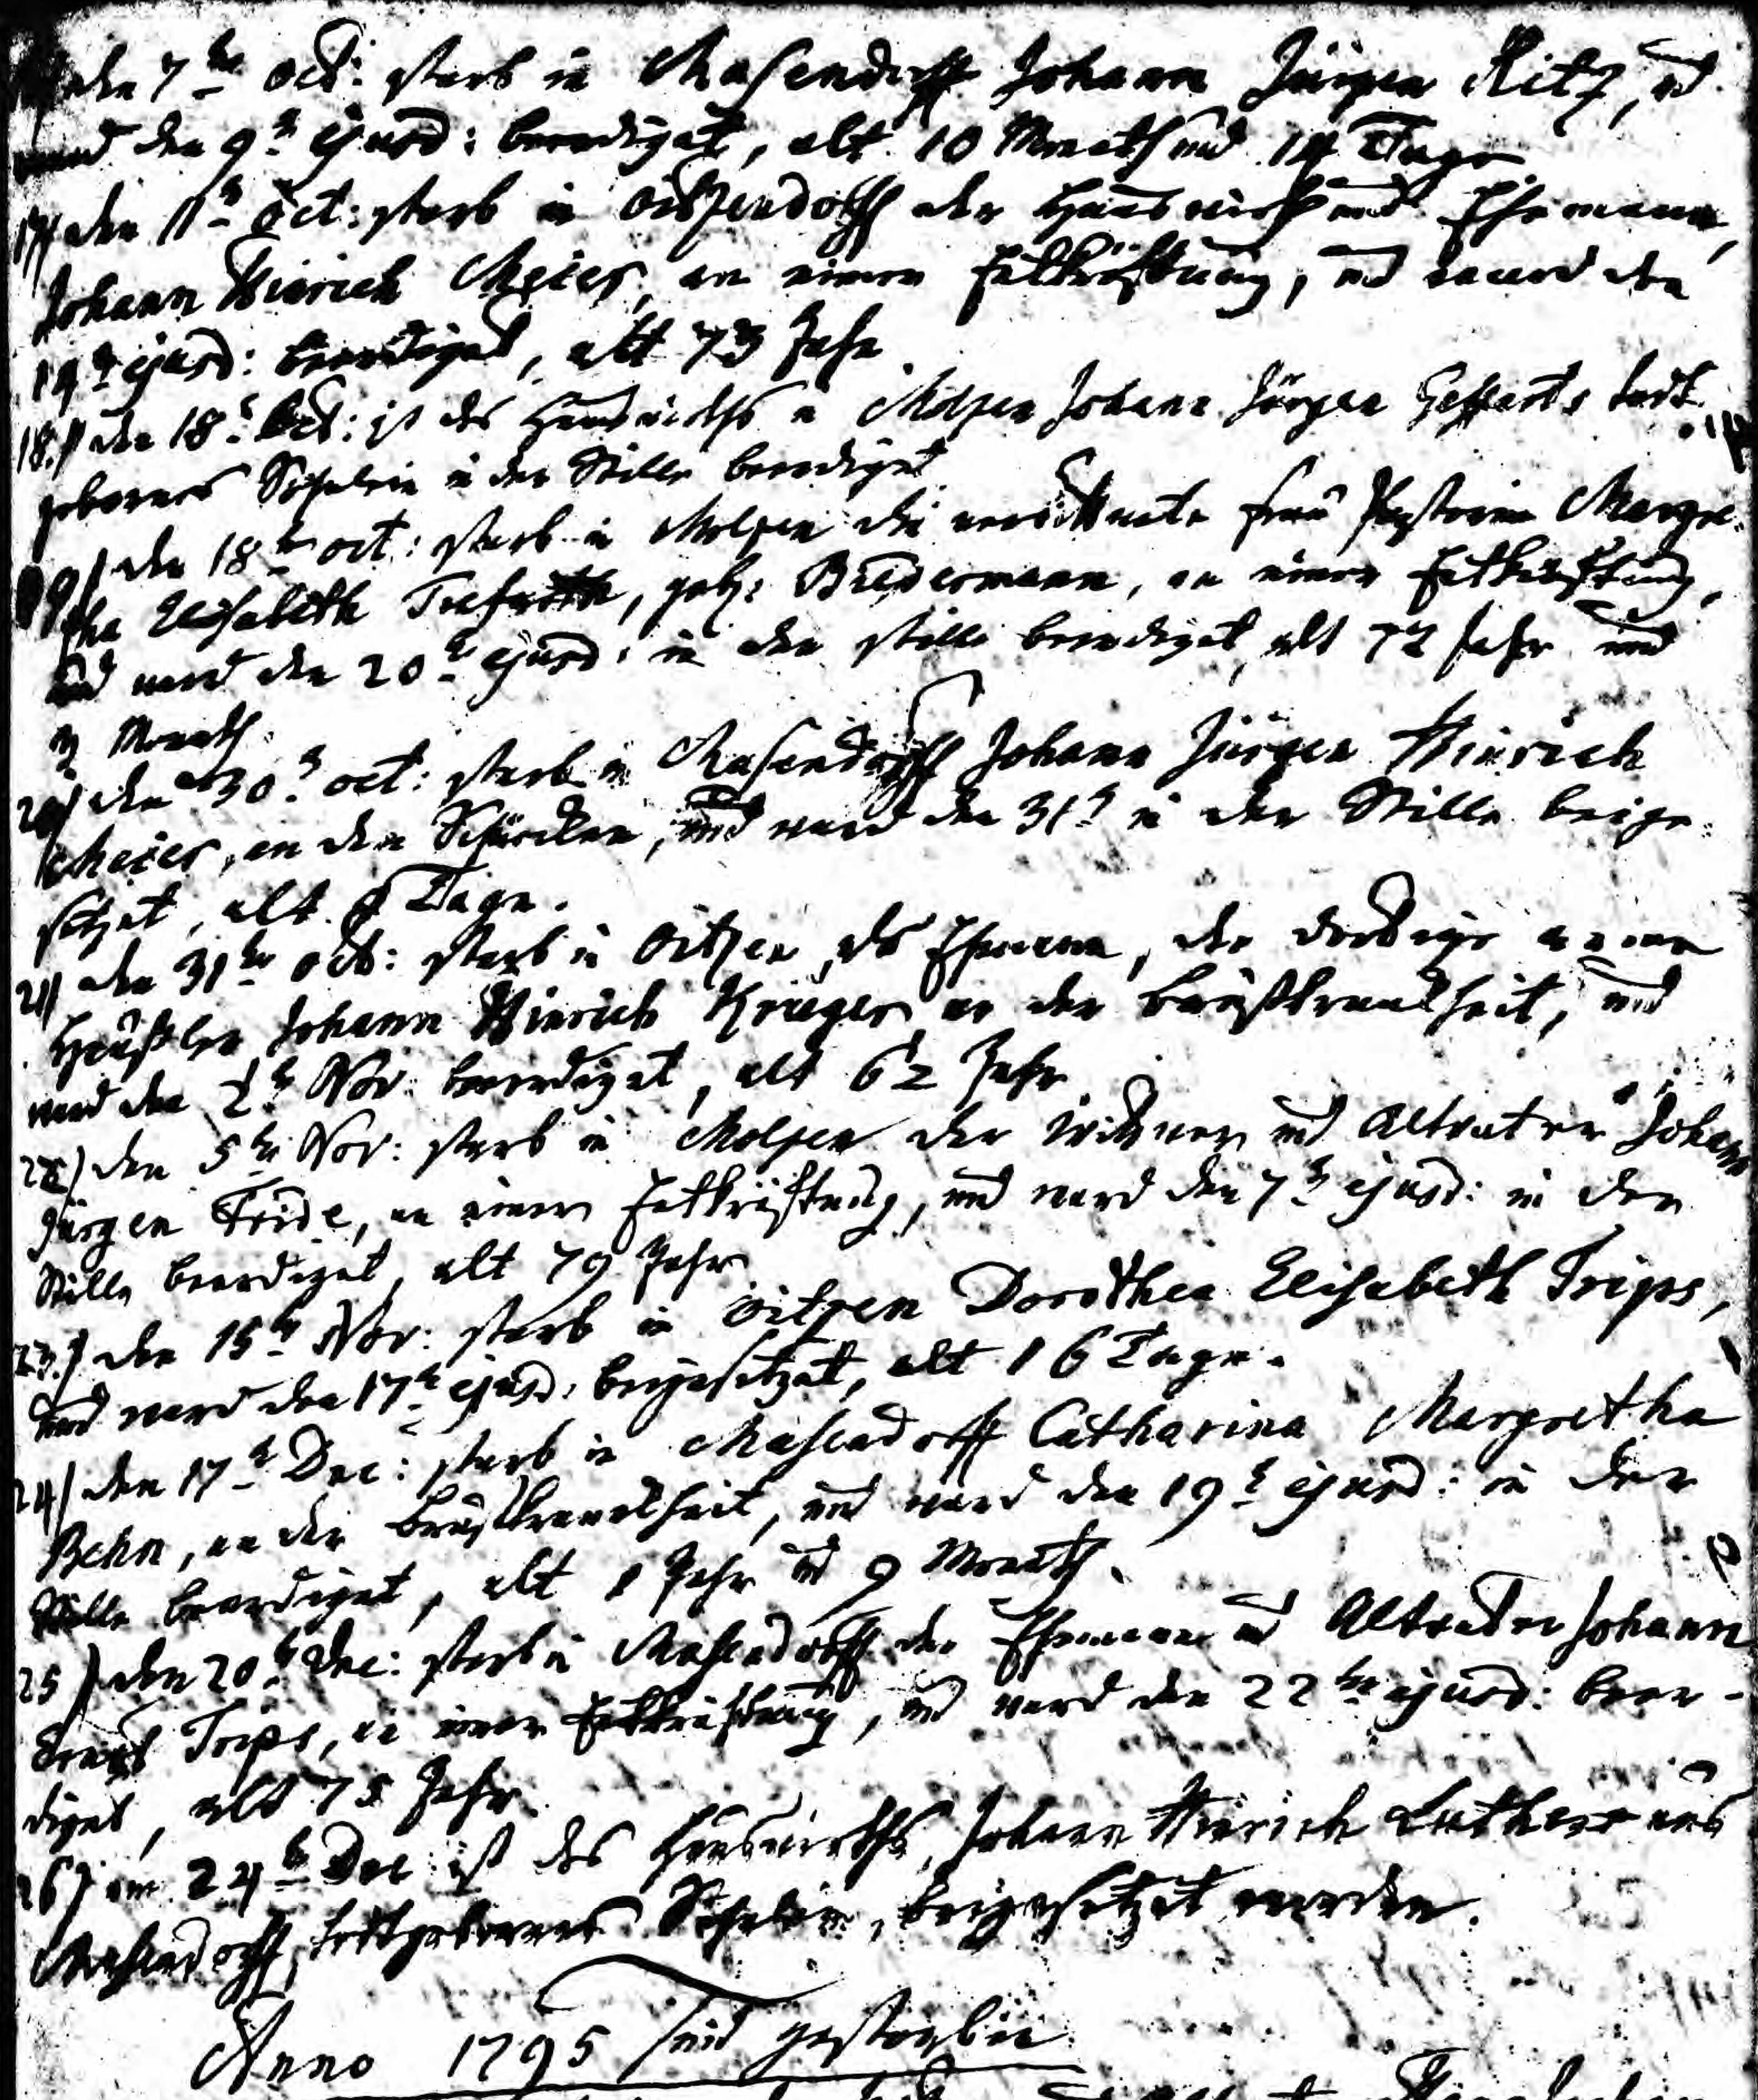 den 7ten Oct: starb in Masendorff Johann Jürgen Ritz, und
ward den 9t ejusd: beerdiget, alt 10 Monath und 14 Tage
17) den 11t Oct: starb in Oitzendorff der Hauswirth und Ehemann,
Johann Hinrich Meier, an einer Entkräftung, und ward den
14t ejusd: beerdiget, alt 73 Jahr
18.) den 18t Oct: ist des Hauswirths in Molzen Johann Jürgen Gefferts todt
gebornes Söhnlein in der Stille beerdiget
19) den 18ten oct: starb in Molzen die verwittwete Frau Pastorin Margre-
tha Elisabeth, geb: Biedermann, an einer Entkräftung,
und ward den 20t ejusd: in der stille beerdiget, alt 72 Jahr und
3 Monath.
20) den 30t oct: starb in Masendorff Johann Jürgen Hinrich
Meier, an den Schürcken, und ward den 31t in der Stille beige-
setzet, alt 8 Tage.
21) den 31ten Oct: starb in Oitzen der Ehemann, der dortige
Häußler Johann Hinrich Krieger an der Brustkrankheit, und
ward den 2t Nov: beerdiget, alt 62 Jahr
22) den 5ten Nov: starb in Molzen der Witwer und Altvater Johann
Jürgen Fride, an einer Entkräftung, und ward den 7t ejusd: in der
Stille beerdiget, alt 79 Jahr
23.) den 15t Nov: starb in Oitzen Dorothea Elisabeth Trips,
und ward den 17t ejusd: beigesetzet, alt 16 Tage.
24) den 17t Dec: starb in Masendorff Catharina Margretha
Behn, an der Brustkrankheit, und ward den 19t ejusd: in der
Stille beerdiget, alt 1 Jahr und 9 Monath.
25) den 20t Dec: starb in Masendorff der Ehemann und Altvater Johann
Ernst Trips, an einer Entkräftung, und ward den 22ten ejusd: beer-
diget, alt 75 Jahr
26) am 24t Dec ist des Hauswirths, Johann Hinrich Luthers aus
Masendorff, todtgebornes Söhnlein, beigesetzet worden.
Anno 1795 sind gestorben